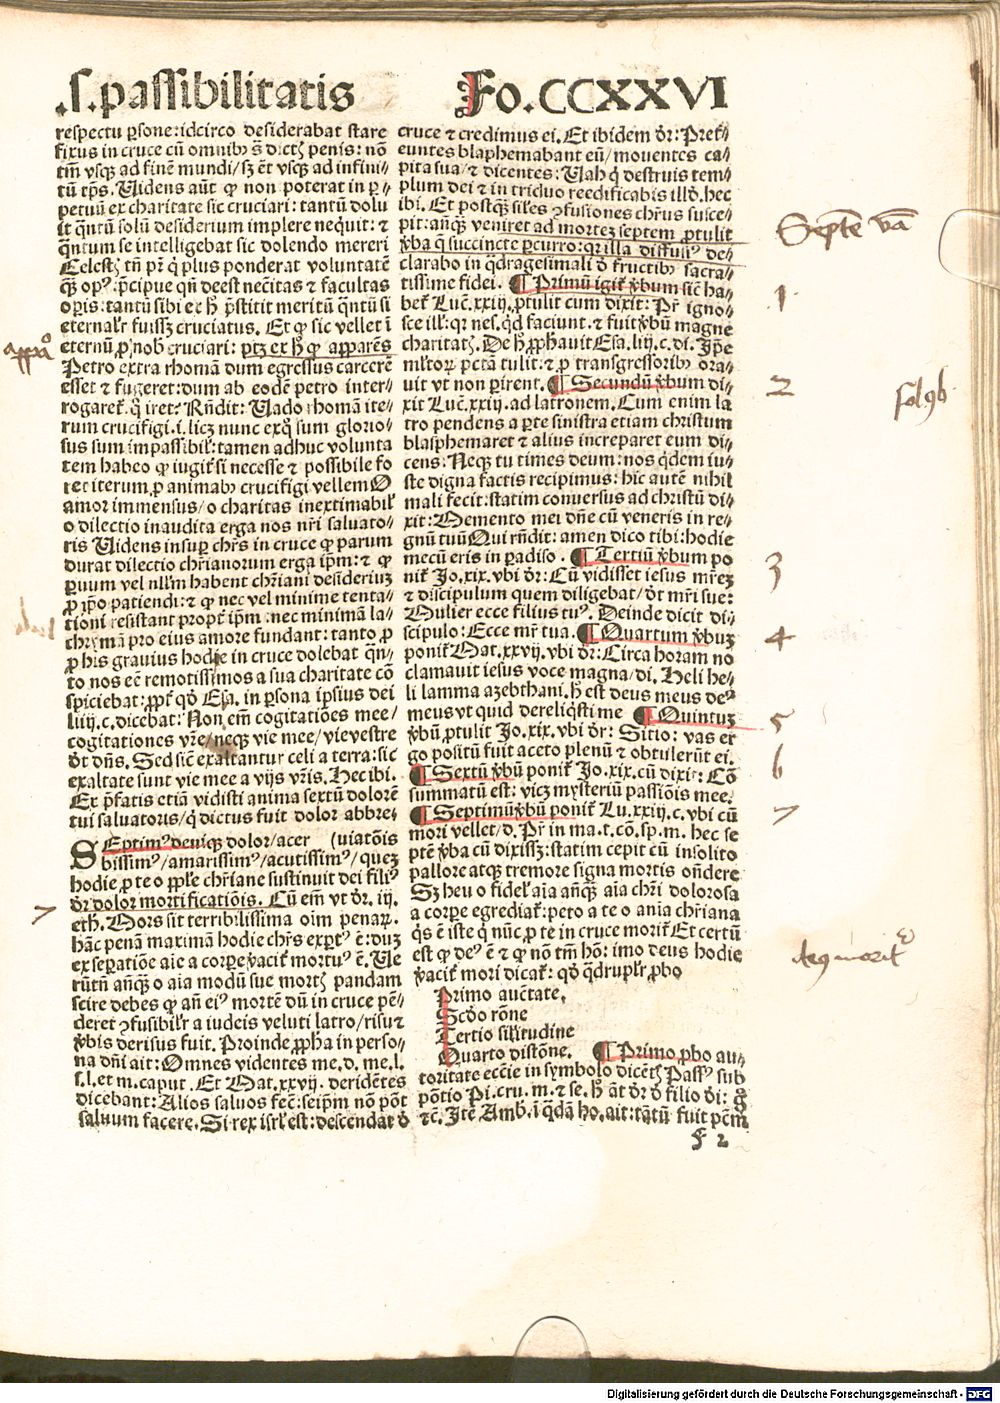 .s. passibilitatis
Fo. CCXXVI
respectu ꝑsone: idcirco desiderabat stare
fixus in cruce cū omnibꝰ ... penis: nō
tm̄ vsqꝫ ad finē mundi/ sꝫ et̄ vsqꝫ ad infini⸗
tū tꝑs. Uidens aūt ꝙ non poterat in ꝑ⸗
petuū ex charitate sic cruciari: tantū dolu
it qn̄tū solū desiderium implere nequit: ⁊
qn̄tum se intelligebat sic dolendo mereri
... tn̄ pr̄ q̇ plus ponderat voluntatē
qꝫ̄ opꝰ. p̄cipue qn̄ deest nec̄itas ⁊ facultas
oꝑis: tantū sibi ex h̄ p̄stitit meritū qn̄tū si
eternalr̄ fuissꝫ cruciatus. Et ꝙ sic vellet ī
eternū ꝓ nob̄ cruciari: ptꝫ ex h̄ ꝙ apparēs
Petro extra rhomā dum egressus carcerē
esset ⁊ fugeret: dum ab eodē petro inter⸗
rogaret̄. q̇ iret: Rn̄dit: Uado rhomā ite⸗
rum crucifigi. i. licꝫ nunc ... sum glorio⸗
sus sum impassibil̄: tamen adhuc volunta
tem habeo ꝙ iugit̄ si necesse ⁊ possibile fo
ret iterum ꝓ animabꝰ crucifigi vellem O
amor immensus/ o charitas inextimabil̄
o dilectio inaudita erga nos nr̄i saluato⸗
ris Uidens insuꝑ chr̄s in cruce ꝙ parum
durat dilectio chr̄ianorum erga ip̄m: ⁊ ꝙ
ꝑuum vel nllm̄ habent chr̄iani desideriuꝫ
ꝓ ip̄o patiendi: ⁊ ꝙ nec vel minime tenta⸗
tioni resistant propt̄ ip̄m: nec minimā la⸗
chrymā pro eius amore fundant: tanto ꝓ
ꝓ his grauius hodie in cruce dolebat qn̄⸗
to nos eē remotissimos a sua charitate cō
spiciebat: ꝓpt̄ qd̄ Esa. in ꝑsona ipsius dei
liiij. c. dicebat: Non em̄ cogitatiōes mee/
cogitationes vr̄e/ neqꝫ vie mee/ vie vestre
dt̄ dn̄s. Sed sic̄ exaltantur celi a terra: sic
exaltate sunt vie mee a vijs vr̄is. Hec ibi.
Ex p̄fatis etiā vidisti anima sextū dolorē
tui saluatoris/ q̇ dictus fuit dolor abbre⸗
SEptimꝰ deniqꝫ dolor/ acer (uiatōis
bissimꝰ/ amarissimꝰ/ acutissimꝰ/ queꝫ
hodie ꝓ te o pp̄le chr̄iane sustinuit dei filiꝰ
dr̄ dolor mortificatiōis. Cū em̄ vt dr̄. iij.
eth. Mors sit terribilissima oīm penaꝝ.
hāc penā maximā hodie chr̄s exꝑtꝰ ē: duꝫ
ex seꝑatiōe aīe a corpe v̄acit̄ mortuꝰ ē. Ue
rūtn̄ anqꝫ̄ o aīa modū sue mort̄ pandam
scire debes ꝙ an̄ eiꝰ mortē dū in cruce pē⸗
deret ꝯfusibilr̄ a iudeis veluti latro/ risu ⁊
v̄bis derisus fuit. Proinde ꝓpha in perso⸗
na dn̄i ait: Omnes videntes me. d. me. l.
s. l. et m. caput. Et Mat. xxvij. deridētes
dicebant: Alios saluos fec̄: seip̄m nō pōt
saluum facere. Si rex isrl̄ est: descendat d̄
cruce ⁊ credimus ei. Et ibidem dr̄: Pret̄⸗
euntes blasphemabant eū/ mouentes ca⸗
pita sua/ ⁊ dicentes: Uah q̇ destruis tem⸗
plum dei ⁊ in triduo reedificabis illd̄. hec
ibi. Et postqꝫ̄ sil̄es ꝯfusiones chr̄us susce⸗
pit: anqꝫ̄ veniret ad mortē septem ꝓtulit
v̄ba q̄ succincte ꝑcurro: qꝛ illa diffusiꝰ de⸗
clarabo in q̇dragesimali d̄ fructibꝰ sacra⸗
tissime fidei. ¶ Primū igit̄ v̄bum sic̄ ha⸗
bet̄ Luc̄. xxiij. ꝓtulit cum dixit: Pr̄ igno⸗
sce ill̄: qꝛ nes. qd̄ faciunt. ⁊ fuit v̄bū magne
charitatꝭ. De h̄ ꝓphauit Esa. liij. c. di. Ip̄e
ml̄toꝝ pctā tulit: ⁊ ꝓ transgressoribꝰ ora⸗
uit vt non perirent. ¶ Secundū v̄bum di⸗
xit Luc̄. xxiij. ad latronem. Cum enim la
tro pendens a parte sinistra etiam christum
blasphemaret ⁊ alius increparet eum di⸗
cens: Neqꝫ tu times deum: nos q̇dem iu⸗
ste digna factis recipimus: hic autē nihil
mali fecit: statim conuersus ad christū di⸗
xit: Memento mei dn̄e cū veneris in re⸗
gnū tuū Qui rn̄dit: amen dico tibi: hodie
mecū eris in ꝑadiso. ¶ Tertiū v̄bum po
nit̄ Jo. xix. vbi dr̄: Cū vidisset iesus mr̄eꝫ
⁊ discipulum quem diligebat/ dt̄ mr̄i sue:
Mulier ecce filius tuꝰ. Deinde dicit di⸗
scipulo: Ecce mr̄ tua. ¶ Quartum v̄buꝫ
ponit̄ Mat. xxvij. vbi dr̄: Circa horam no
clamauit iesus voce magna/ di. Heli he⸗
li lamma azebthani. h̄ est deus meus deꝰ
meus vt quid dereliq̇sti me ¶ Quintuꝫ
v̄bū ꝓtulit Jo. xix. vbi dr̄: Sitio: vas er
go positū fuit aceto plenū ⁊ obtulerūt ei.
¶ Sextū v̄bū ponit̄ Jo. xix. cū dixit: Cō
summatū est: vicꝫ mysteriū passiōis mee.
¶ Septimū v̄bū ponit̄ Lu. xxiij. c. vbi cū
mori vellet/ d. Pr̄ in ma. t. cō. sp. m. hec se
ptē v̄ba cū dixissꝫ: statim cepit cū insolito
pallore atqꝫ tremore signa mortis on̄dere
Sꝫ heu o fidel̄ aīa anqꝫ̄ aīa chr̄i dolorosa
a corpe egrediat̄: peto a te o anīa chr̄iana
q̇s ē iste q̇ nūc ꝓ te in cruce morit̄ Et certū
est ꝙ deꝰ ē ⁊ ꝙ nō tm̄ hō: imo deus hodie
v̄acit̄ mori dicat̄: qd̄ q̇druplr̄ ꝓbo
Primo auc̄tate.
Scd̄o rōne
Tertio sil̄itudine
Quarto distōne. ¶ Primo ꝓbo au⸗
toritate ecc̄ie in symbolo dicētꝭ Passꝰ sub
pōtio Pi. cru. m. ⁊ se. h̄ āt dr̄ d̄ filio dī: ...
⁊c. Itē Amb. ī q̇dā ho. ait: tātū fuit pctm̄
f 2
Septē v̄ba
1
2
3
4
5
6
7
7
Digitalisierung gefördert durch die Deutsche Forschungsgemeinschaft - DFG